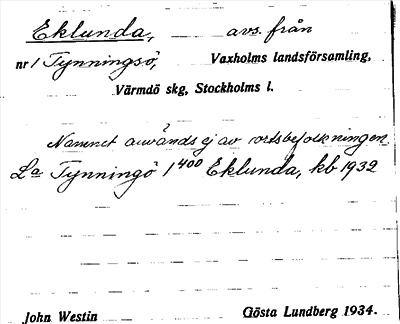 Eklunda, avs. från
nr 1 Tynningsö, Vaxholms landsförsamling,
Värmdö skg, Stockholms l.
Namnet används ej av ortsbefolkningen
La Tynningö 1 400 Eklunda, kb 1932
John Westin Gösta Lundberg 1934.